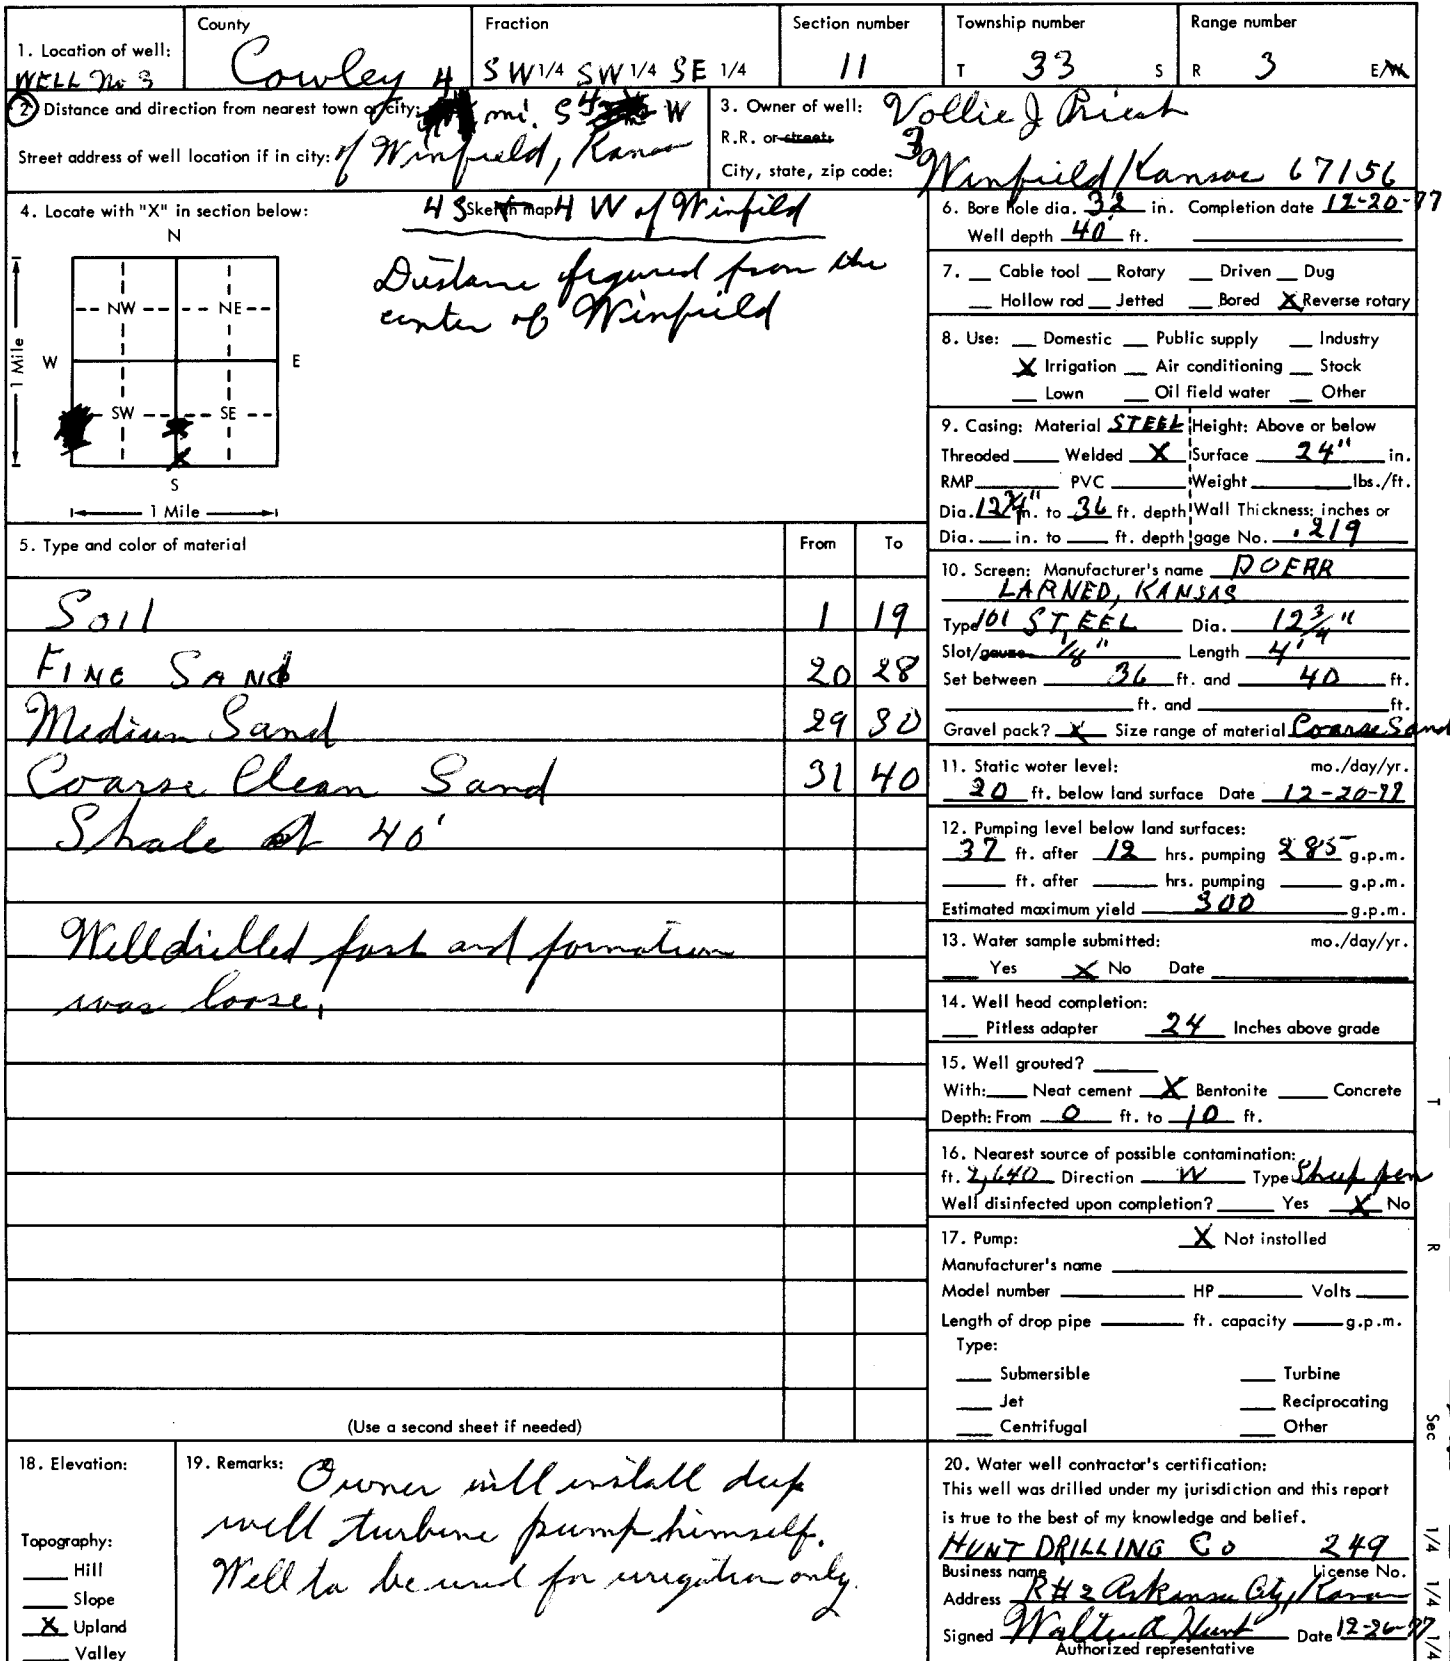 1. Location of well:
WELL No 3
County
Cowley
Fraction
4 SW 1/4 SW 1/4 SE 1/4
Section number
11
Township number
T 33 S
Range number
R 3 E/W
2 Distance and direction from nearest town or city: mi. S 4 W
Street address of well location if in city: of Winfield, Kansas
3. Owner of well: Vollie J Priest
R.R. or street: 3
City, state, zip code: Winfield Kansas 67156
4. Locate with "X" in section below:
N
NW NE
W E
SW SE
S
1 Mile
1 Mile
4 S Sketch map 4 W of Winfield
Distance figured from the
center of Winfield
5. Type and color of material From To
Soil 1 19
FINE SANd 20 28
Medium Sand 29 30
Coarse Clean Sand 31 40
Shale at 40'
Well drilled fast and formation
was loose,
(Use a second sheet if needed)
6. Bore hole dia. 32 in. Completion date 12-20-77
Well depth 40 ft.
7. Cable tool Rotary Driven Dug
Hollow rod Jetted Bored X Reverse rotary
8. Use: Domestic Public supply Industry
X Irrigation Air conditioning Stock
Lown Oil field water Other
9. Casing: Material STEEL Height: Above or below
Threaded Welded X Surface 24" in.
RMP PVC Weight lbs./ft.
Dia. 12 3/4" in. to 36 ft. depth Wall Thickness: inches or
Dia. in. to ft. depth gage No. .219
10. Screen: Manufacturer's name DOERR
LARNED, KANSAS
Type 101 STEEL Dia. 12 3/4"
Slot/gauze 1/8" Length 4'
Set between 36 ft. and 40 ft.
ft. and ft.
Gravel pack? X Size range of material Coarse Sand
11. Static water level: mo./day/yr.
20 ft. below land surface Date 12-20-77
12. Pumping level below land surfaces:
37 ft. after 12 hrs. pumping 285 g.p.m.
ft. after hrs. pumping g.p.m.
Estimated maximum yield 300 g.p.m.
13. Water sample submitted: mo./day/yr.
Yes X No Date
14. Well head completion:
Pitless adapter 24 Inches above grade
15. Well grouted?
With: Neat cement X Bentonite Concrete
Depth: From 0 ft. to 10 ft.
16. Nearest source of possible contamination:
ft. 2,640 Direction W Type Sheep pen
Well disinfected upon completion? Yes X No
17. Pump: X Not installed
Manufacturer's name
Model number HP Volts
Length of drop pipe ft. capacity g.p.m.
Type:
Submersible Turbine
Jet Reciprocating
Centrifugal Other
18. Elevation:
Topography:
Hill
Slope
X Upland
Valley
19. Remarks: Owner will install deep
well turbine pump himself.
Well to be used for irrigation only.
20. Water well contractor's certification:
This well was drilled under my jurisdiction and this report
is true to the best of my knowledge and belief.
HUNT DRILLING Co 249
Business name License No.
Address R#2 Arkansas City, Kansas
Signed Walter A Hunt Date 12-26-77
Authorized representative
T
R
Sec
1/4
1/4
1/4